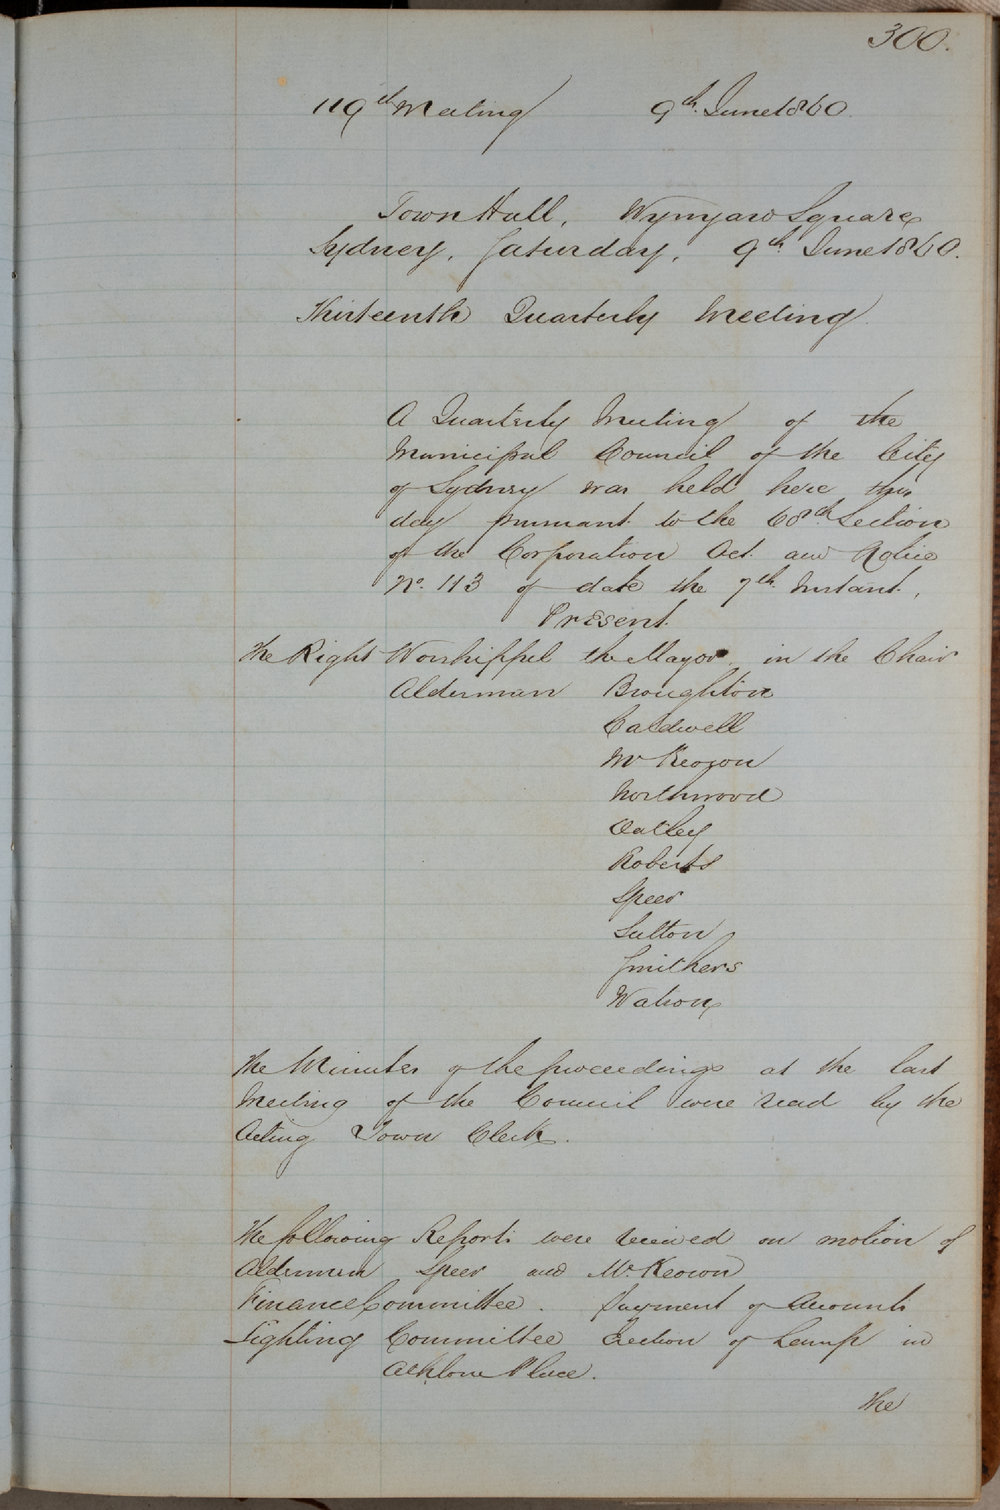 300.
119th Meeting 9th June 1860.
Town Hall, Wynyard Square
Sydney, Saturday, 9th June 1860.
Thirteenth Quarterly Meeting
A Quarterly Meeting of the
Municipal Council of the City
of Sydney was held here this
day pursuant to the 68th Section
of the Corporation Act and Notice
No. 113 of date the 7th Instant,
Present
The Right Worshipful the Mayor in the Chair
Alderman Broughton
Caldwell
McKeown
Northwood
Oatley
Roberts
Speer
Sutton
Smithers
Watson
The Minutes of the proceedings at the last
Meeting of the Council were read by the
Acting Town Clerk.
The following Reports were received on motion of
Aldermen Speer and McKeown
Finance Committee. Payment of Accounts
Lighting Committee Erection of Lamp in
Athlone Place.
The